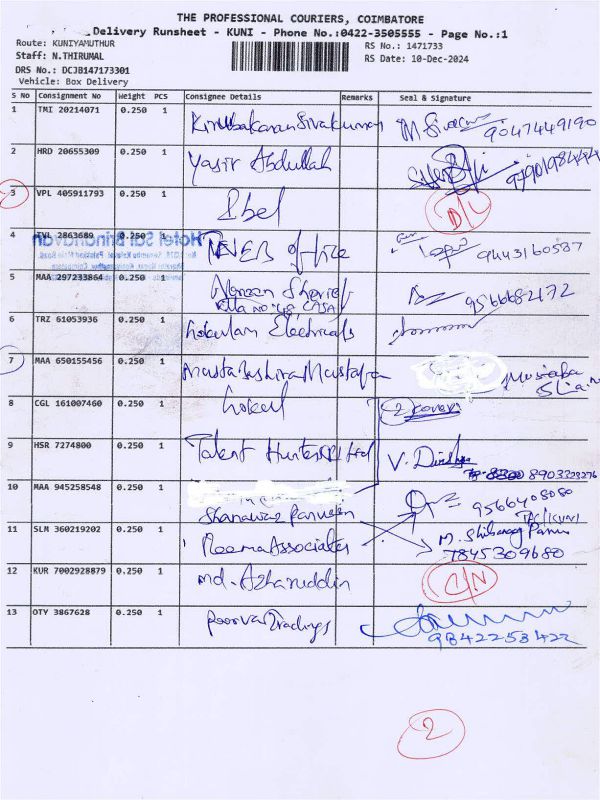 THE PROFESSIONAL COURIERS, COIMBATORE
Delivery Runsheet - KUNI - Phone No.:0422-3505555 - Page No.:1
Route: KUNIYAMUTHUR
RS No.: 1471733
Staff: N.THIRUMAL
RS Date: 10-Dec-2024
DRS No.: DCJB147173301
Vehicle: Box Delivery
S No Consignment No Weight PCS Consignee Details Remarks Seal & Signature
1 TMI 20214071 0.250 1 9047449190
2 HRD 20655309 0.250 1 Yasir Abdullah
3 VPL 405911793 0.250 1 Ibel D/L
4 TVL 2863689 0.250 1 office 9443160587
Hotel Sai Brindhavan
5 MAA 297233864 0.250 1 9566682172
Villa NO "48, CASA
6 TRZ 61053936 0.250 1 Gokulam Electricals
7 MAA 650155456 0.250 1 Mustafa
8 CGL 161007460 0.250 1 Gokul 2 cover
9 HSR 7274800 0.250 1 Talent Hunters V.
8903323276
10 MAA 945258548 0.250 1 9566408080
Shanawaz Parveen
11 SLM 360219202 0.250 1 Neema Associates M.
7845309680
12 KUR 7002928879 0.250 1 md. Azharuddin C/N
13 OTY 3867628 0.250 1 Poorva Tradings
9842253422
2